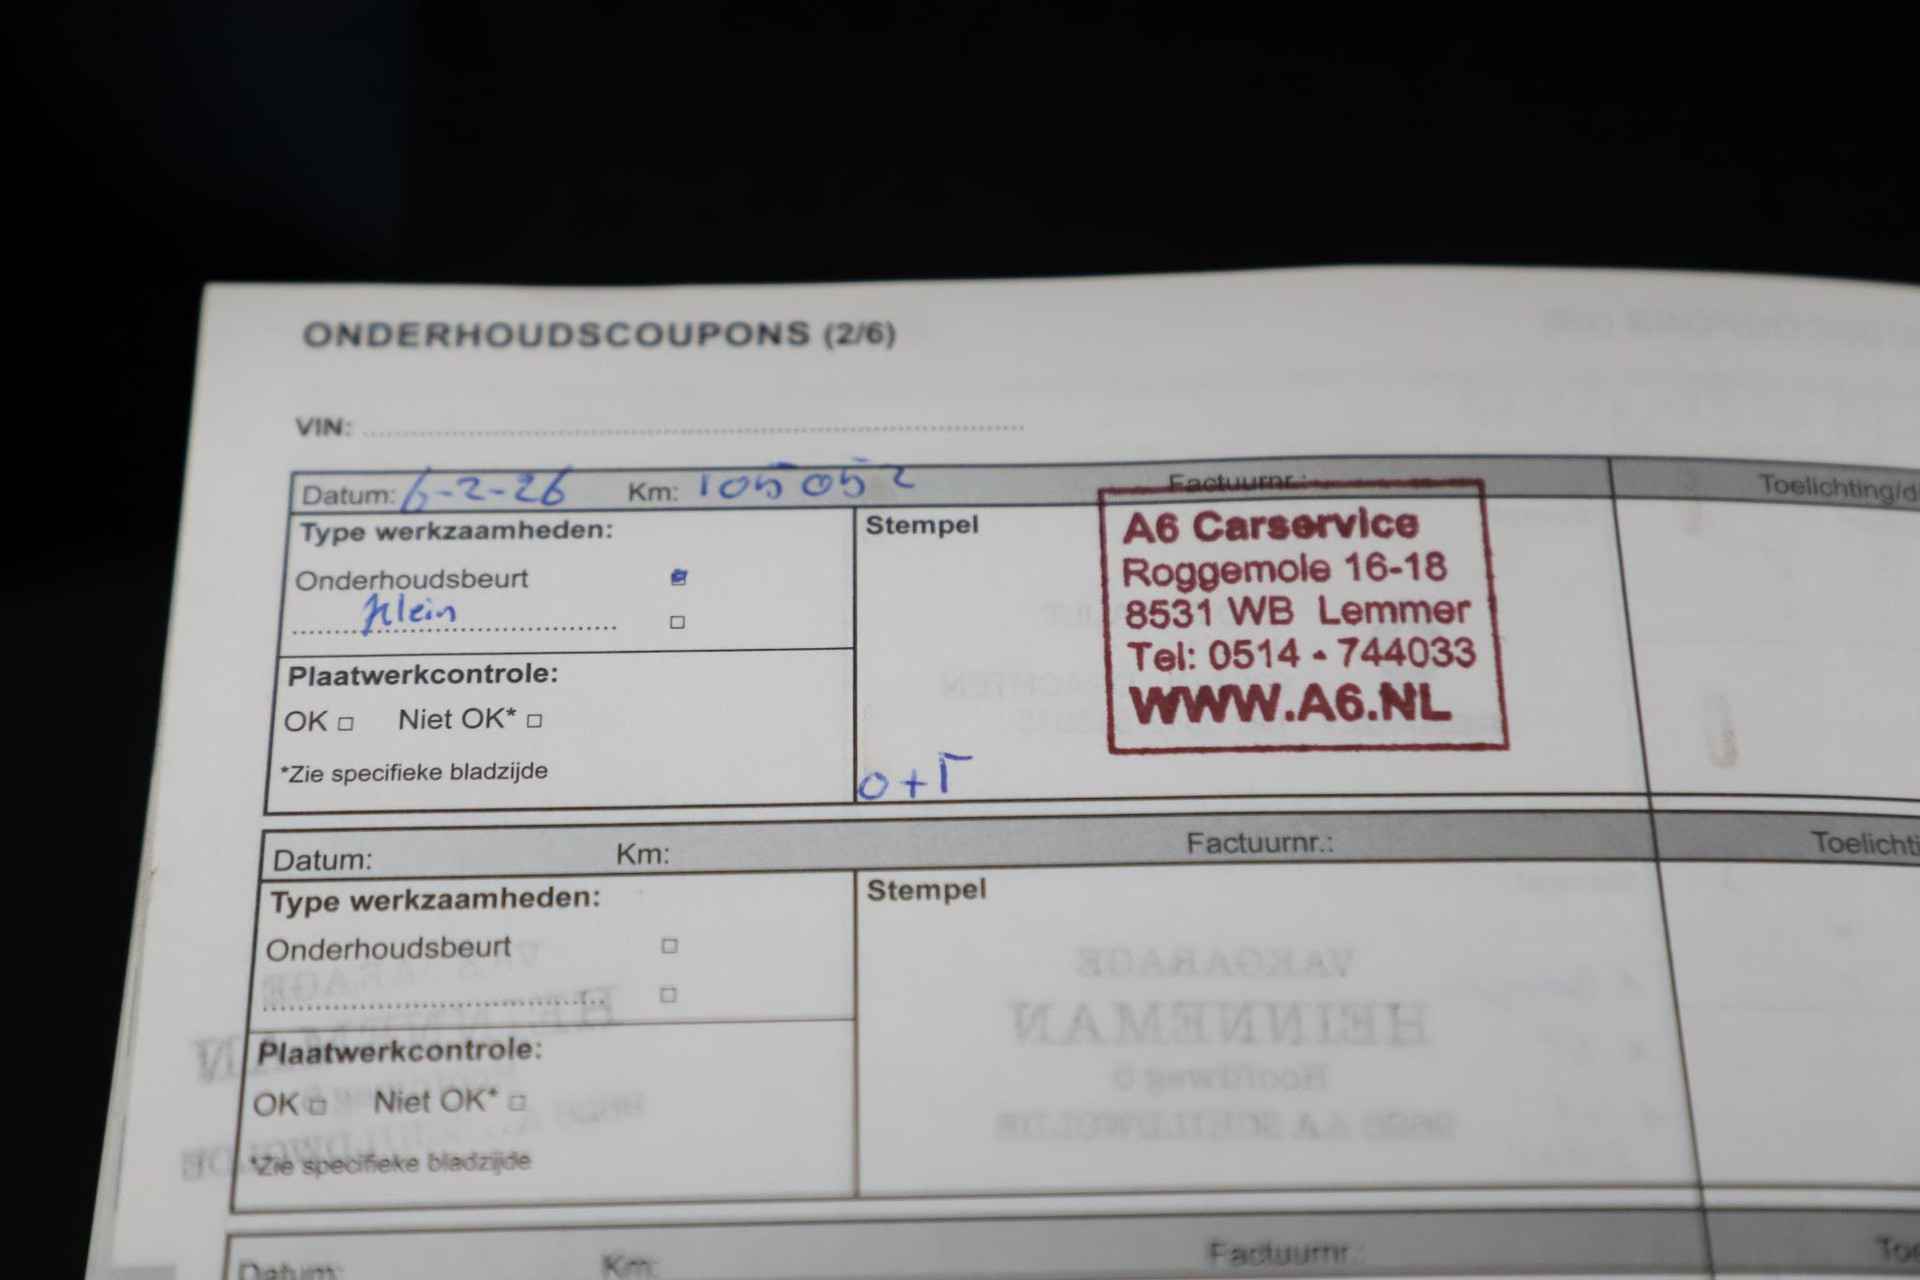 ONDERHOUDSCOUPONS (2/6)
VIN:
Datum: 6-2-26 Km: 105052 Factuurnr.: Toelichting/d
Type werkzaamheden:
Stempel
Onderhoudsbeurt
Klein
A6 Carservice
Roggemole 16-18
8531 WB Lemmer
Tel: 0514 - 744033
WWW.A6.NL
Plaatwerkcontrole:
OK Niet OK*
*Zie specifieke bladzijde
Datum: Km: Factuurnr.: Toelichti
Type werkzaamheden:
Stempel
Onderhoudsbeurt
Plaatwerkcontrole:
OK Niet OK*
*Zie specifieke bladzijde
VAKGARAGE
HEINNEMAN
Hoofdweg
Datum: Km: Factuurnr.: